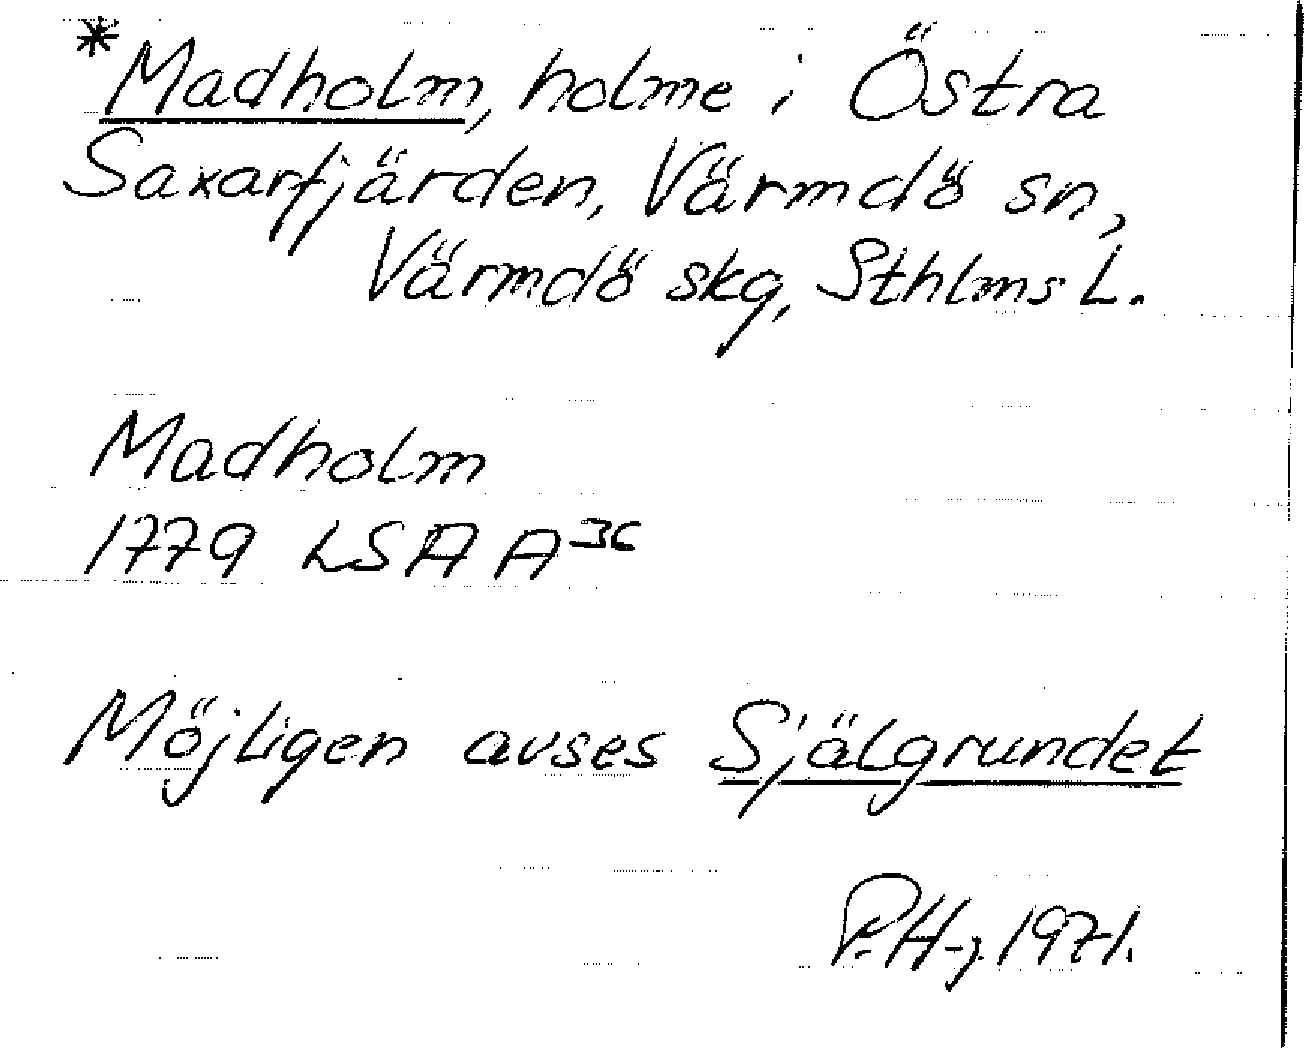 *Madholm, holme i Östra
Saxarfjärden, Värmdö sn,
Värmdö skg, Sthlms L.
Madholm
1779 LSA A 36
Möjligen avses Själgrundet
P.H-j 1971.